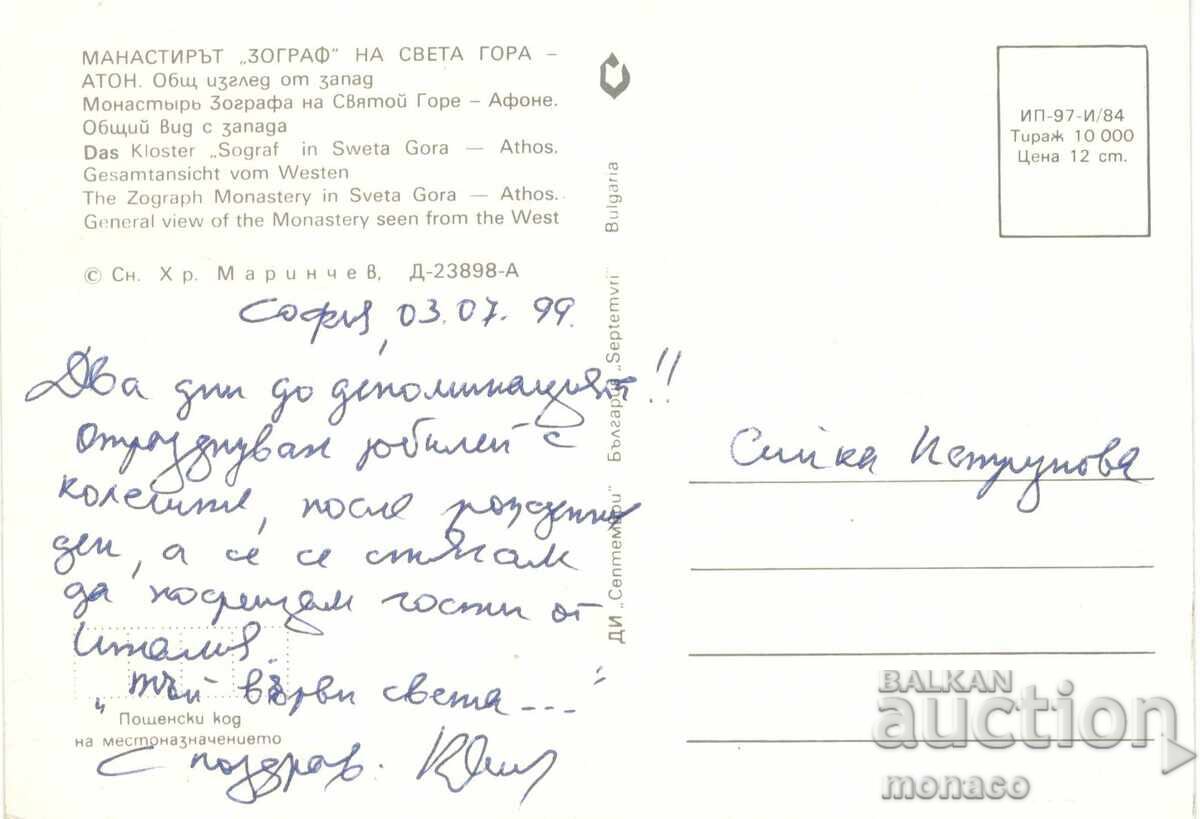 МАНАСТИРЪТ „ЗОГРАФ" НА СВЕТА ГОРА –
АТОН. Общ изглед от запад
Монастырь Зографа на Святой Горе – Афоне.
Общий вид с запада
Das Kloster „Sograf in Sweta Gora — Athos.
Gesamtansicht vom Westen
The Zograph Monastery in Sveta Gora — Athos.
General view of the Monastery seen from the West
© Сн. Хр. Маринчев, Д-23898-А
София, 03.07.99.
Два дни до деноминацият!!
Отпразднувах юбилей с
колегите, после рожденния
ден, а се се стягам
да посрещам гости от
Италия.
„Тъй върви света---"
Пощенски код
на местоназначението
С поздрав.
ДИ „Септември" България „Septemvri" Bulgaria
ИП-97-И/84
Тираж 10 000
Цена 12 ст.
Сийка Петрунова
BALKAN
auction
monaco